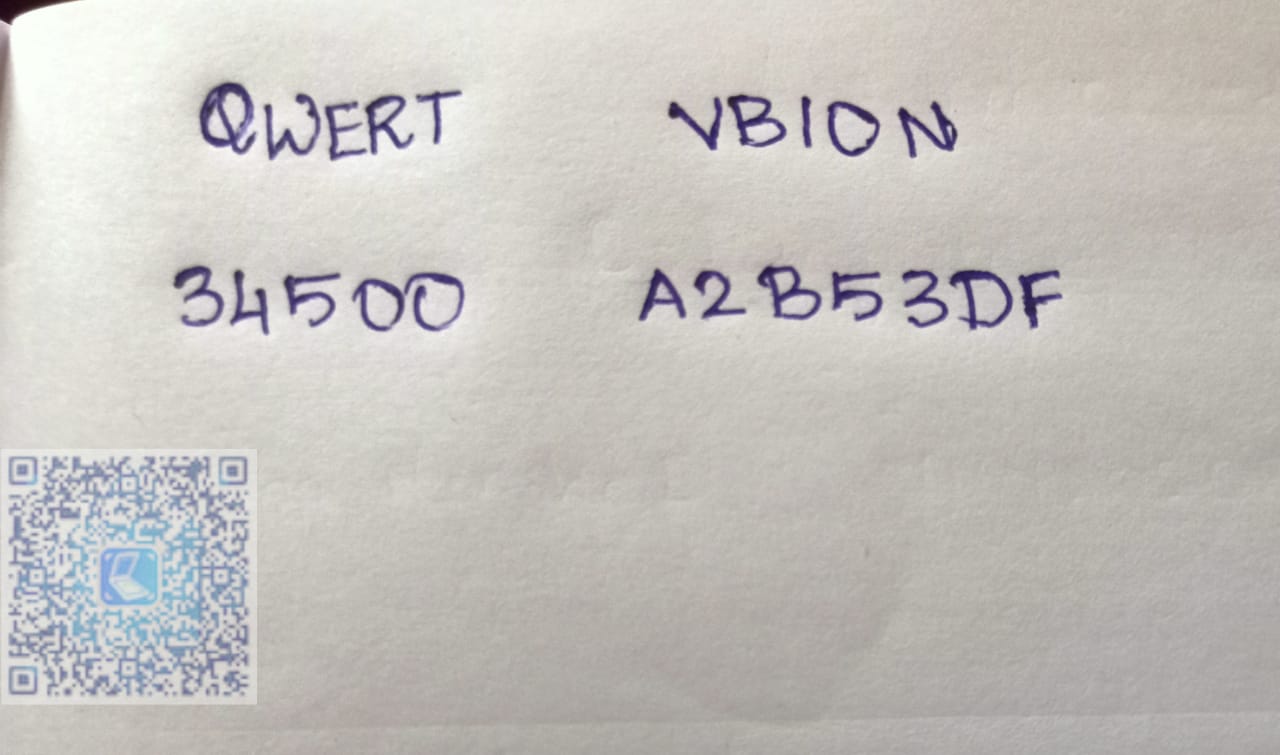 QWERT VBION
34500 A2B53DF